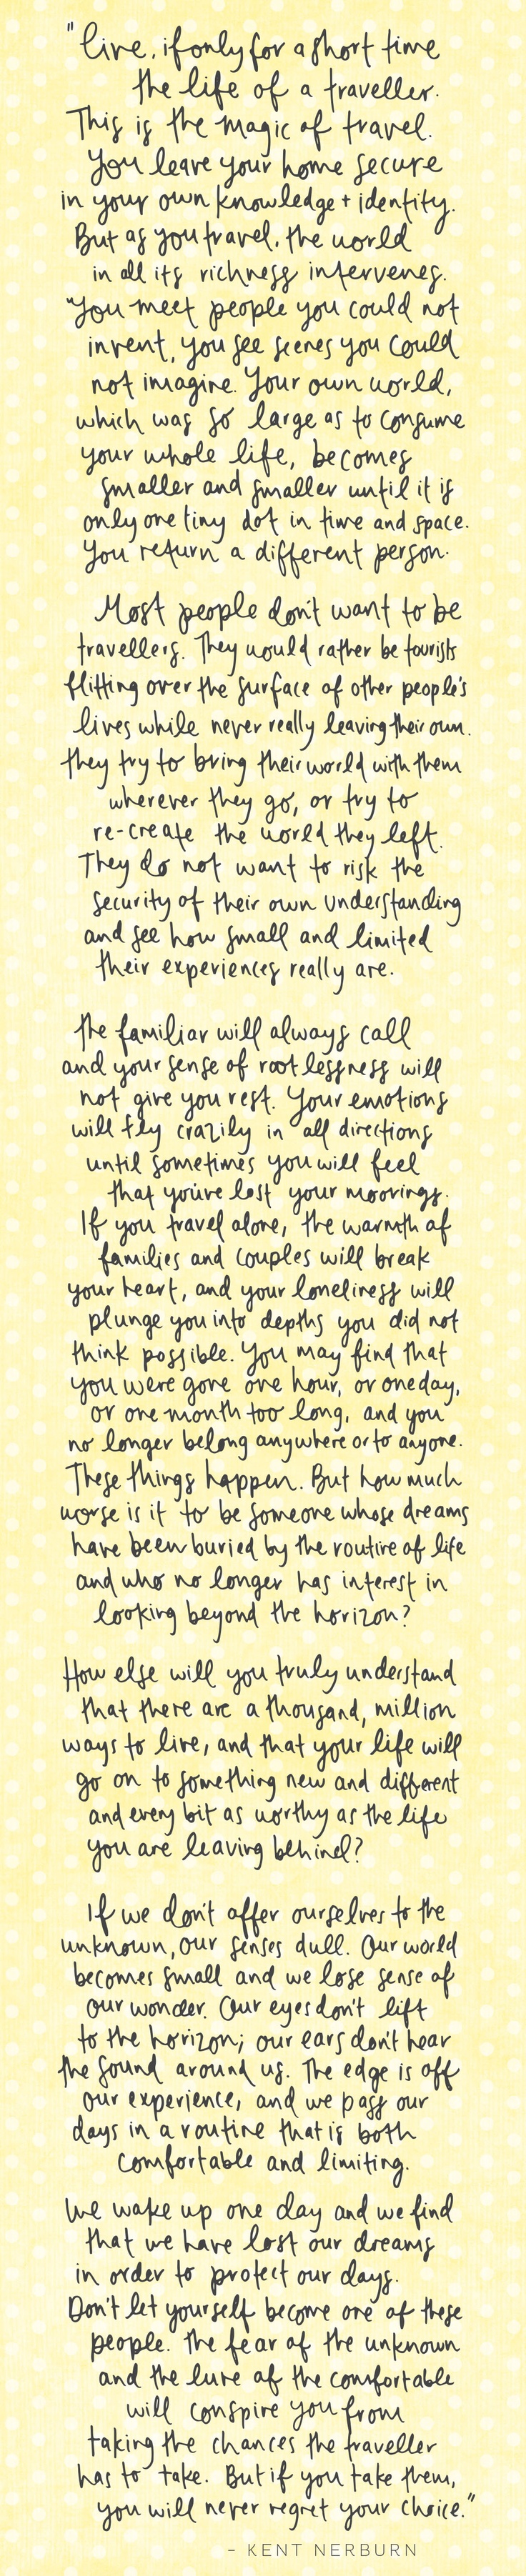 "live, if only for a short time
the life of a traveller.
This is the magic of travel.
You leave your home secure
in your own knowledge + identity.
But as you travel, the world
in all its richness intervenes.
"You meet people you could not
invent, you see scenes you could
not imagine. Your own world,
which was so large as to consume
your whole life, becomes
smaller and smaller until it is
only one tiny dot in time and space.
You return a different person.
Most people don't want to be
travellers. They would rather be tourists
flitting over the surface of other people's
lives while never really leaving their own.
they try to bring their world with them
wherever they go, or try to
re-create the world they left.
They do not want to risk the
security of their own understanding
and see how small and limited
their experiences really are.
The familiar will always call
and your sense of rootlessness will
not give you rest. Your emotions
will fly crazily in all directions
until sometimes you will feel
that you've lost your moorings.
If you travel alone, the warmth of
families and couples will break
your heart, and your loneliness will
plunge you into depths you did not
think possible. You may find that
you were gone one hour, or one day,
or one month too long, and you
no longer belong anywhere or to anyone.
These things happen. But how much
worse is it to be someone whose dreams
have been buried by the routine of life
and who no longer has interest in
looking beyond the horizon?
How else will you truly understand
that there are a thousand, million
ways to live, and that your life will
go on to something new and different
and every bit as worthy as the life
you are leaving behind?
If we don't offer ourselves to the
unknown, our senses dull. Our world
becomes small and we lose sense of
our wonder. Our eyes don't lift
to the horizon; our ears don't hear
the sound around us. The edge is off
our experience, and we pass our
days in a routine that is both
comfortable and limiting.
We wake up one day and we find
that we have lost our dreams
in order to protect our days.
Don't let yourself become one of these
people. The fear of the unknown
and the lure of the comfortable
will conspire you from
taking the chances the traveller
has to take. But if you take them,
you will never regret your choice."
- KENT NERBURN